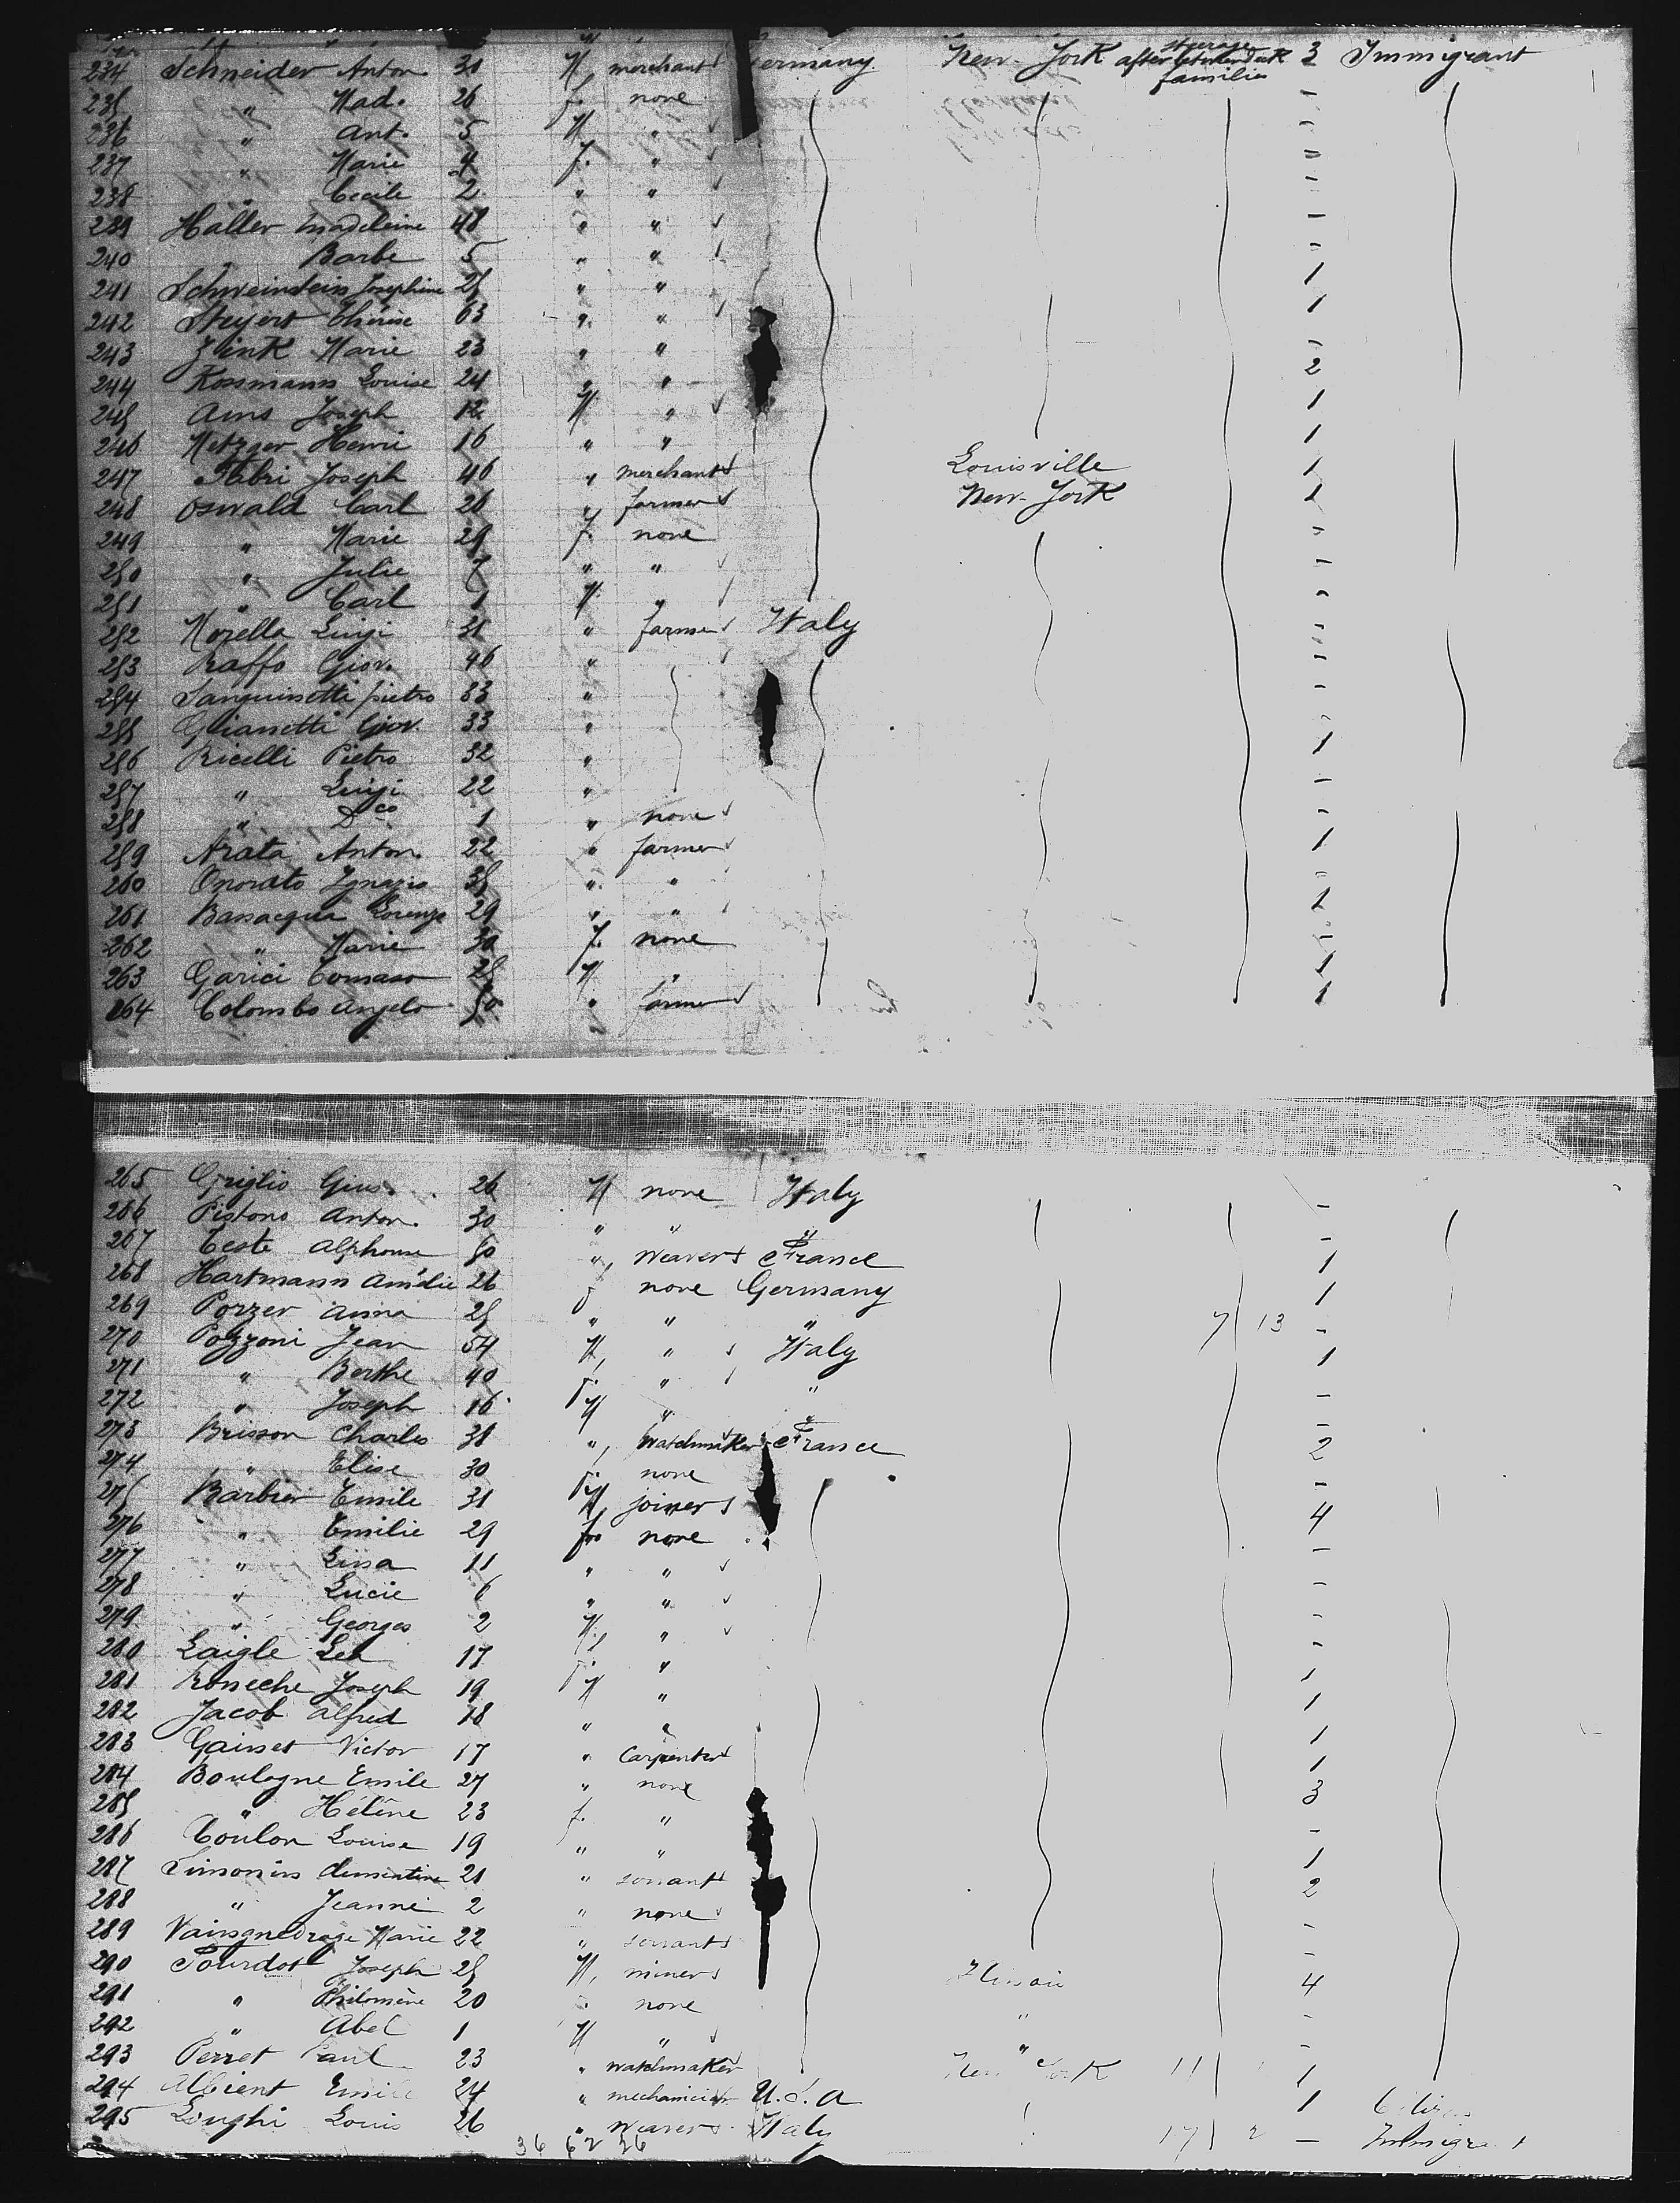 234 Schneider Anton 31 M, merchant Germany New-York steerage after between deck families 3 Immigrant
235 " Mad. 26 f. none -
236 " Ant. 5 M " -
237 " Marie 4 f. " -
238 " Cecile 2 " " -
239 Haller Madeleine 48 " " -
240 " Barbe 5 " " -
241 Schweinstein Josephine 25 " " 1
242 Thérèse 63 " " 1
243 Zink Marie 23 " " -
244 Rossmann Louise 24 " " 2
245 Ams Joseph 12 M " 1
246 Metzger Henri 16 " " 1
247 Fabri Joseph 46 " merchant Louisville 1
248 Oswald Carl 26 " farmer New-York 1
249 " Marie 29 f. none -
250 " Julie 7 " " -
251 " Carl 1 M. " -
252 Mozella Luigi 31 " farmer Italy -
253 Raffo Giov. 46 " -
254 Sanguinetti pietro 33 " -
255 Gianetti Giov. 33 " -
256 Ricelli Pietro 32 " 1
257 " Luigi 22 " -
258 " Dco 1 " none -
259 Arata Anton. 22 " farmer 1
260 Onorato Ignazio 35 " " -
261 Bassacqua Lorenzo 29 " " 2
262 " Marie 30 f. none -
263 Garici Tomaso 25 M " 1
264 Colombo Angelo 50 " farmer 1
265 Griglio Gius. 26 M none Italy -
266 Pistono Anton. 30 " " " -
267 Teste Alphonse 50 ", weaver France 1
268 Hartmann Amélie 26 f none Germany 1
269 Porzer Anna 25 " " " 7 13 -
270 Pozzoni Jean 54 M, " Italy 1
271 " Berthe 40 f. " " -
272 " Joseph 16 M " " -
273 Brisson Charles 31 ", Watchmaker France 2
274 " Elise 30 f. none -
275 Barbier Emile 31 M, joiner 4
276 " Emilie 29 f. none -
277 " Lissa 11 " " -
278 " Lucie 6 " " -
279 " Georges 2 M, " -
280 Laigle Lea 17 f. " 1
281 Roneche Joseph 19 M " 1
282 Jacob Alfred 18 " " 1
283 Gainset Victor 17 " Carpenter 1
284 Boulogne Emile 27 " none 3
285 " Hélène 23 f. " -
286 Coulon Louise 19 " " 1
287 Simonin Clementine 21 " servant 2
288 " Jeanne 2 " none -
289 Marie 22 " servant -
290 Pourdot Joseph 25 M, miner Illinois 4
291 " Philomène 20 f. none " -
292 " Abel 1 M " " -
293 Perret Paul 23 " watchmaker New York 11 1
294 Albient Emile 24 " mechanician U.S.A 1 Citizen
295 Longhi Louis 26 " Weaver Italy 17 2 - Immigrant
36 62 26